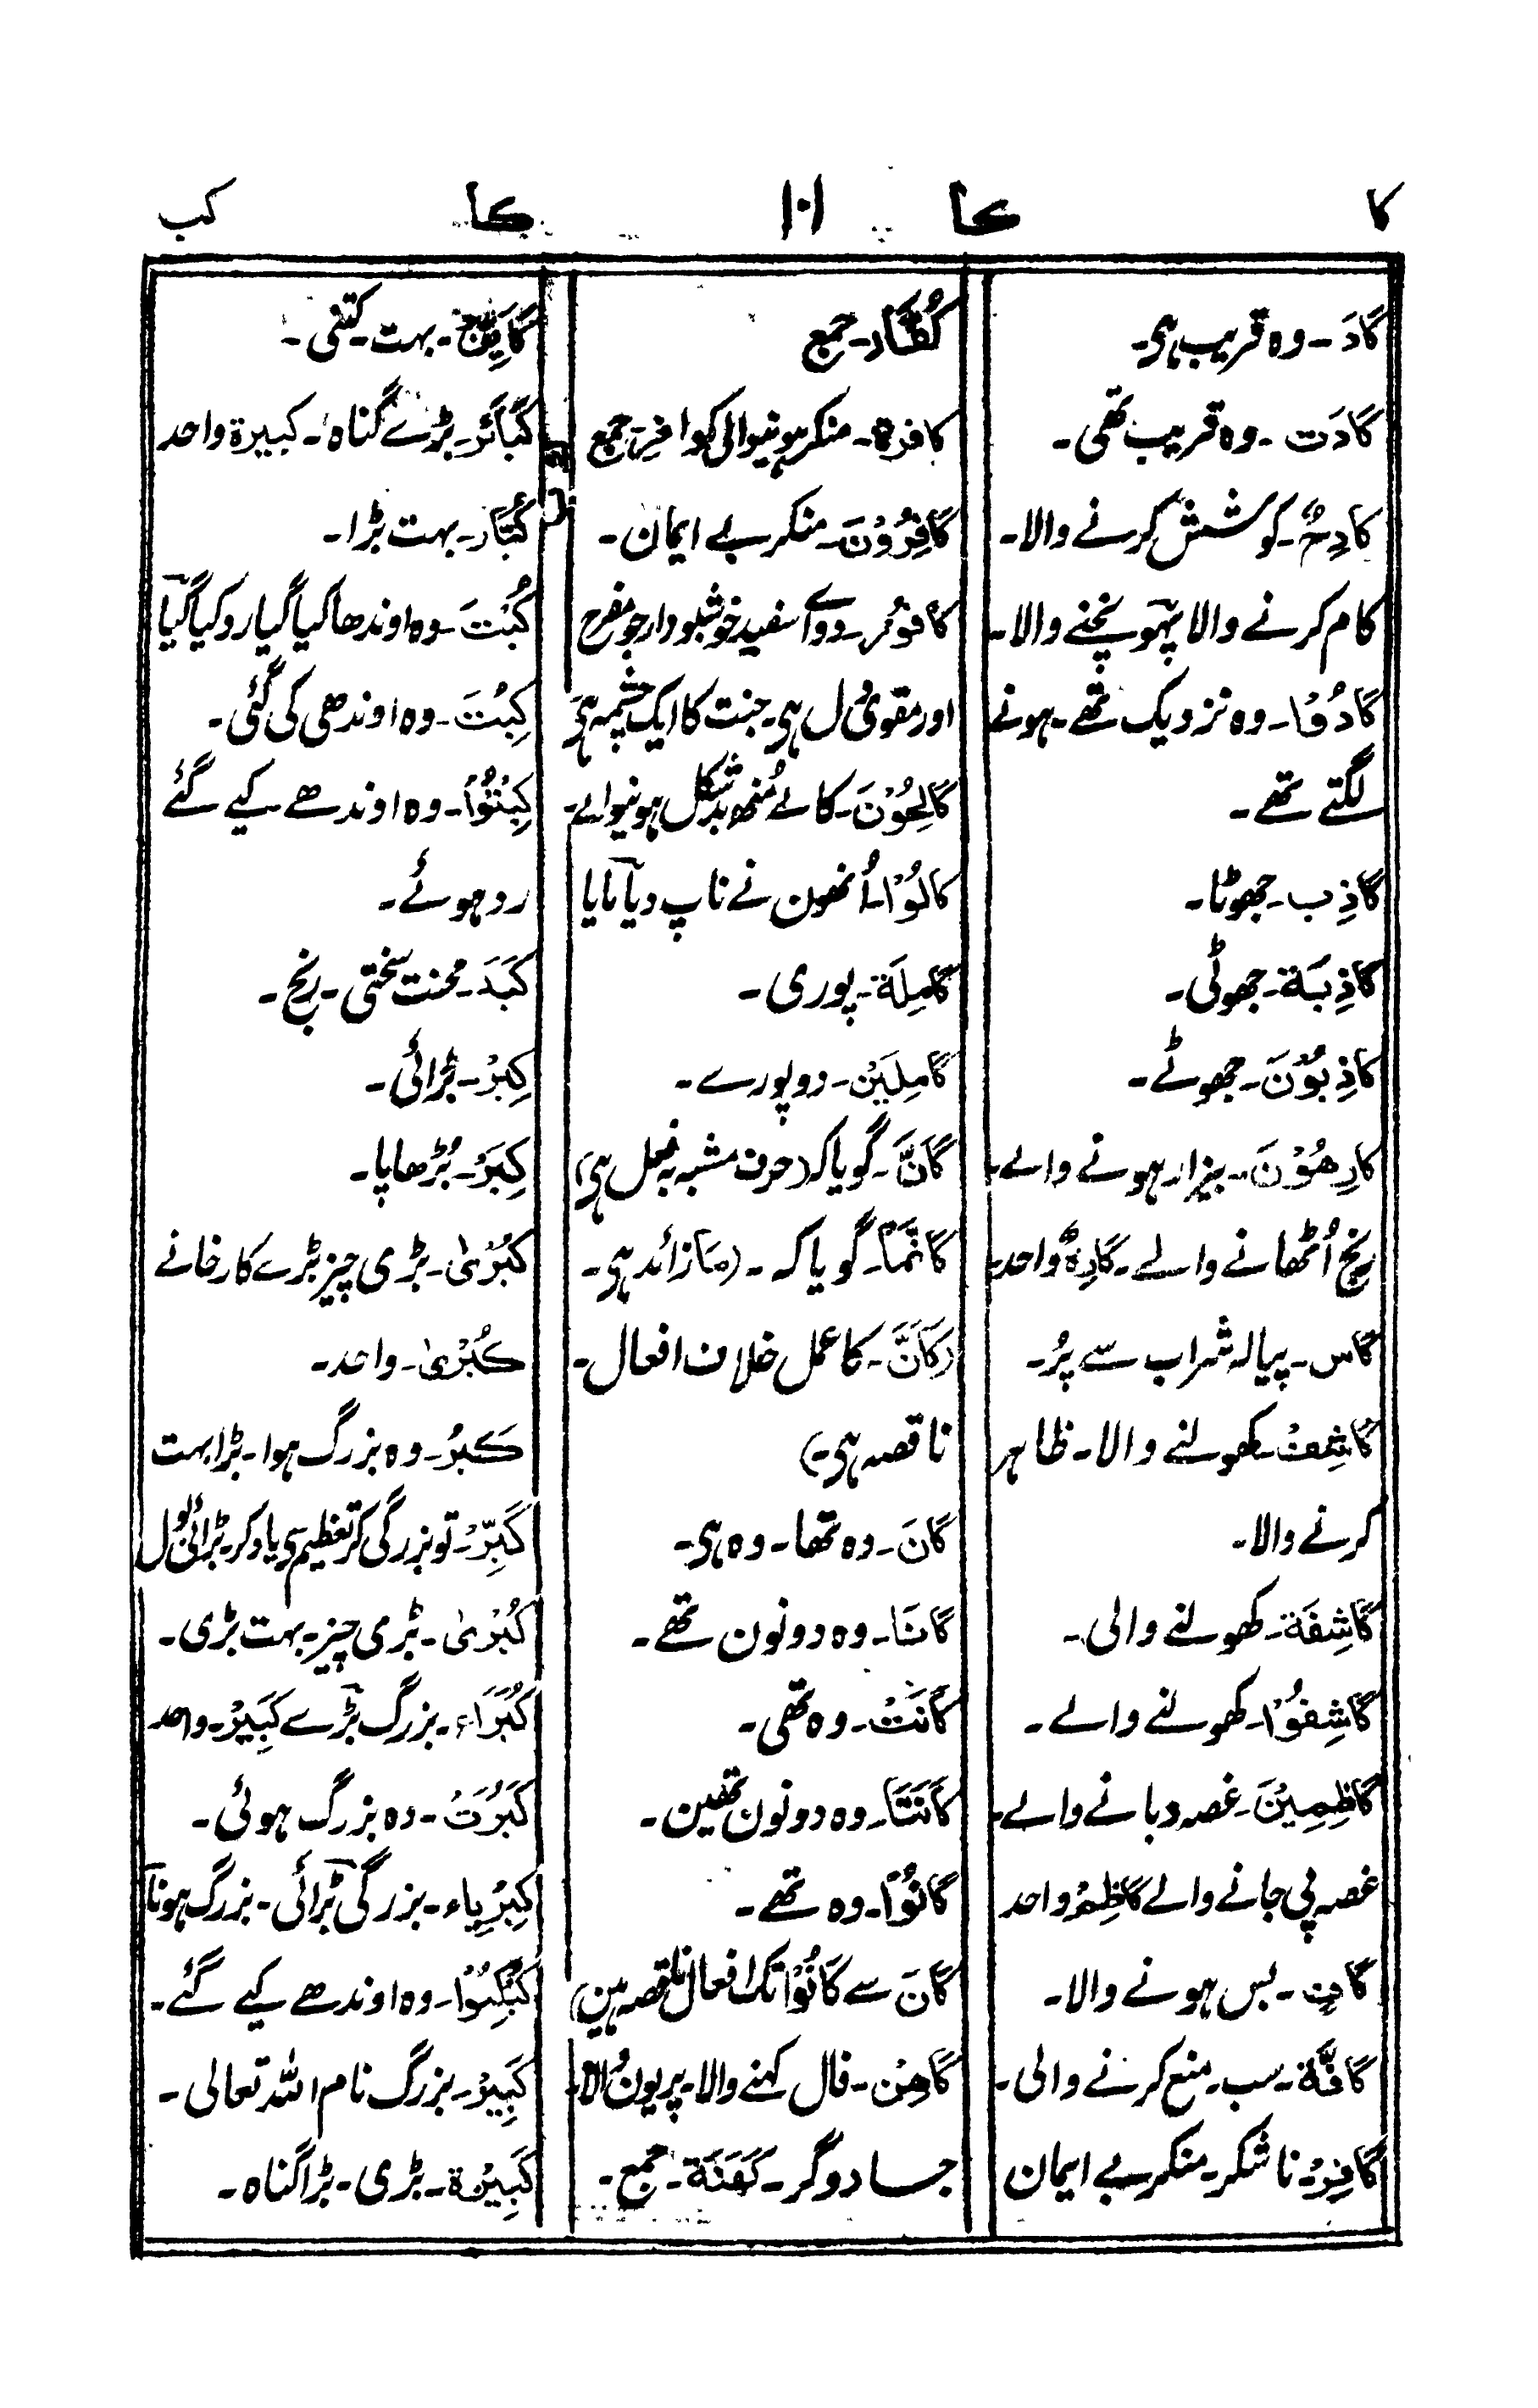 کا کا ۱۰۱ کا کب
کَادَ۔ وہ قریب ہی۔
کَادَت۔ وہ قریب تھی۔
کَادِحٌ۔ کوشش کرنے والا۔
کام کرنے والا پہونچنے والا۔
کَادُوْا۔ وہ نزدیک تھے۔ ہونے
لگتے تھے۔
کَاذِب۔ جھوٹا۔
کَاذِبَۃ۔ جھوٹی۔
کَاذِبُوْنَ۔ جھوٹے۔
کَارِھُوْنَ۔ بیزار ہونے والے۔
رنج اُٹھانے والے۔ کَارِہٌ واحد۔
کَاس۔ پیالہ شراب سے پُر۔
کَاشِفْ۔ کھولنے والا۔ ظاہر
کرنے والا۔
کَاشِفَۃ۔ کھولنے والی۔
کَاشِفُوْا۔ کھولنے والے۔
کَاظِمِیْنَ۔ غصہ دبانے والے۔
غصہ پی جانے والے کَاظِمْ واحد
کَافٍ۔ بس ہونے والا۔
کَافَّۃ۔ سب۔ منع کرنے والی۔
کَافِرْ۔ ناشکر۔ منکر بے ایمان
کُفَّار۔ جمع
کافرہ۔ منکر ہونیوالی کوافِر۔ جمع
کَافِرُوْنَ۔ منکر بے ایمان۔
کافُوْر۔ دوائے سفید خوشبودار جو مفرح
اور مقوی دل ہی۔ جنت کا ایک چشمہ ہی
کَالِحُوْنَ۔ کالے مُنھ بدشکل ہونیوالے۔
کَالُوْا۔ اُنھون نے ناپ دیا نا پایا
کَامِلَۃ۔ پوری۔
کَامِلَیْن۔ دو پورے۔
کَاَنَّ۔ گویا کہ (حرف مشبہ بفعل ہی)
کَاَنَّمَا۔ گویا کہ۔ (مَا زائد ہی۔
(کَاَنَّ۔ کا عمل خلاف افعال۔
ناقصہ ہی۔)
کَانَ۔ وہ تھا۔ وہ ہی۔
کَانَا۔ وہ دونون تھے۔
کَانَتْ۔ وہ تھی۔
کَانَتَا۔ وہ دونون تھین۔
کَانُوْا۔ وہ تھے۔
کَانَ سے کَانُوْا تک افعال ناقصہ ہین)
کَاھِنْ۔ فال کہنے والا۔ پریون والا۔
جادوگر۔ کَھَنَۃ۔ جمع۔
کَاَیِّنْ۔ بہت۔ کتنی۔
کَبَائِرْ۔ بڑے گناہ۔ کبیرۃ واحد
کُبَّار۔ بہت بڑا۔
کُبِتَ۔ وہ اوندھا کیا گیا رد کیا گیا
کِبُتَ۔ وہ اوندھی کی گئی۔
کُبِتُوْا۔ وہ اوندھے کیے گئے
رد ہوئے۔
کَبَدَ۔ محنت سختی۔ رنج۔
کِبْرْ۔ بڑائی۔
کِبَرْ۔ بُڑھاپا۔
کُبْرٰی۔ بڑی چیز بڑے کارخانے
کُبْرٰی۔ واحد۔
کَبُرْ۔ وہ بزرگ ہوا۔ بڑا بہت
کَبِّرْ۔ تو بزرگی کر تعظیم سی یاد کر۔ بڑائی بول
کُبْرٰی۔ بڑی چیز۔ بہت بڑی۔
کُبَرَاء۔ بزرگ بڑے کَبِیْرْ۔ واحد
کَبُرَتْ۔ وہ بزرگ ہوئی۔
کِبْرِیاء۔ بزرگی بڑائی۔ بزرگ ہونا
کُبْکِبُوْا۔ وہ اوندھے کیے گئے۔
کَبِیْرْ۔ بزرگ نام اللہ تعالی۔
کَبِیْرَۃ۔ بڑی۔ بڑا گناہ۔